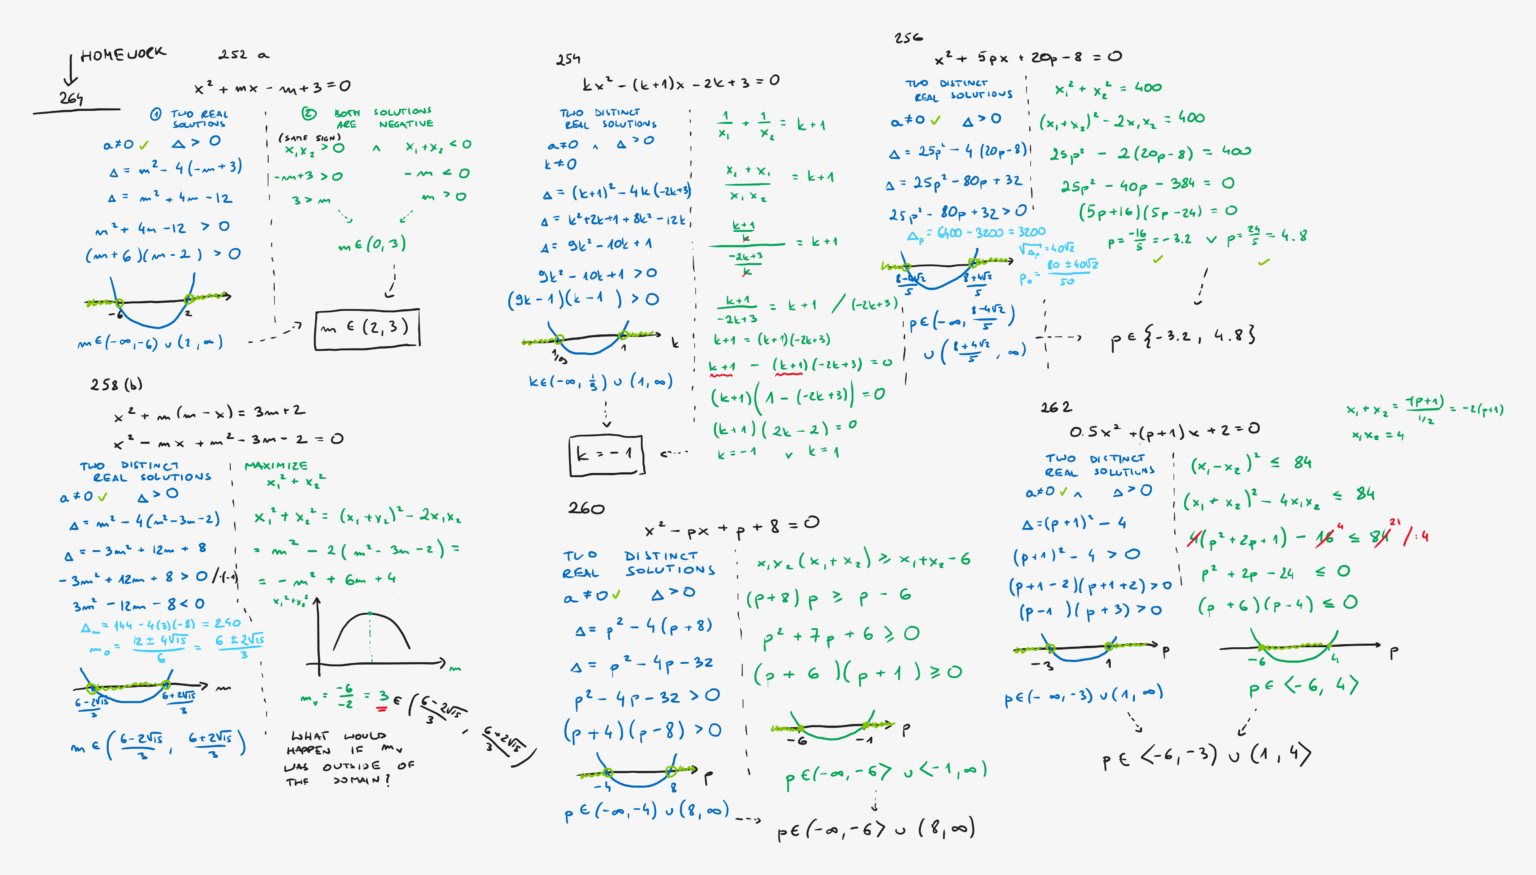 HOMEWORK
264
252 a
x² + mx - m + 3 = 0
① TWO REAL SOLUTIONS
a≠0 ✓ Δ > 0
Δ = m² - 4(-m+3)
Δ = m² + 4m - 12
m² + 4m - 12 > 0
(m+6)(m-2) > 0
-6 2
m∈(-∞,-6) ∪ (2,∞)
② BOTH SOLUTIONS ARE NEGATIVE
(SAME SIGN)
x₁x₂ > 0 ∧ x₁+x₂ < 0
-m+3 > 0 -m < 0
3 > m m > 0
m∈(0,3)
m ∈ (2,3)
254
kx² - (k+1)x - 2k + 3 = 0
TWO DISTINCT
REAL SOLUTIONS
a≠0 ∧ Δ > 0
k≠0
Δ = (k+1)² - 4k(-2k+3)
Δ = k²+2k+1+8k²-12k
Δ = 9k² - 10k + 1
9k² - 10k + 1 > 0
(9k-1)(k-1) > 0
1/9 1 k
k∈(-∞, 1/9) ∪ (1,∞)
1/x₁ + 1/x₂ = k+1
(x₁ + x₁)/(x₁x₂) = k+1
((k+1)/k)/((-2k+3)/k) = k+1
(k+1)/(-2k+3) = k+1 /(-2k+3)
k+1 = (k+1)(-2k+3)
k+1 - (k+1)(-2k+3) = 0
(k+1)(1 - (-2k+3)) = 0
(k+1)(2k-2) = 0
k=-1 ∨ k=1
k = -1
256
x² + 5px + 20p - 8 = 0
TWO DISTINCT
REAL SOLUTIONS
a≠0 ✓ Δ > 0
Δ = 25p² - 4(20p-8)
Δ = 25p² - 80p + 32
25p² - 80p + 32 > 0
Δₚ = 6400 - 3200 = 3200
√Δₚ = 40√2
p₀ = (80 ± 40√2)/50
(8-4√2)/5 (8+4√2)/5
p∈(-∞, (8-4√2)/5)
∪ ((8+4√2)/5, ∞)
x₁² + x₂² = 400
(x₁+x₂)² - 2x₁x₂ = 400
25p² - 2(20p-8) = 400
25p² - 40p - 384 = 0
(5p+16)(5p-24) = 0
p = -16/5 = -3.2 ∨ p = 24/5 = 4.8
✓ ✓
p∈{-3.2, 4.8}
258 (b)
x² + m(m-x) = 3m+2
x² - mx + m² - 3m - 2 = 0
TWO DISTINCT
REAL SOLUTIONS
a≠0 ✓ Δ > 0
Δ = m² - 4(m²-3m-2)
Δ = -3m² + 12m + 8
-3m² + 12m + 8 > 0 /·(-1)
3m² - 12m - 8 < 0
Δₘ = 144 - 4(3)(-8) = 240
m₀ = (12 ± 4√15)/6 = (6 ± 2√15)/3
(6-2√15)/3 (6+2√15)/3 m
m∈((6-2√15)/3, (6+2√15)/3)
MAXIMIZE
x₁² + x₂²
x₁² + x₂² = (x₁+x₂)² - 2x₁x₂
= m² - 2(m² - 3m - 2) =
= -m² + 6m + 4
x₁²+x₂²
m
mᵥ = -6/-2 = 3 ∈ ((6-2√15)/3, (6+2√15)/3)
WHAT WOULD
HAPPEN IF mᵥ
WAS OUTSIDE OF
THE DOMAIN?
260
x² - px + p + 8 = 0
TWO DISTINCT
REAL SOLUTIONS
a≠0 ✓ Δ > 0
Δ = p² - 4(p+8)
Δ = p² - 4p - 32
p² - 4p - 32 > 0
(p+4)(p-8) > 0
-4 8 p
p∈(-∞,-4) ∪ (8,∞)
x₁x₂(x₁+x₂) ≥ x₁+x₂-6
(p+8)p ≥ p - 6
p² + 7p + 6 ≥ 0
(p+6)(p+1) ≥ 0
-6 -1 p
p∈(-∞,-6> ∪ <-1,∞)
p∈(-∞,-6> ∪ (8,∞)
262
0.5x² + (p+1)x + 2 = 0
x₁+x₂ = -(p+1)/(1/2) = -2(p+1)
x₁x₂ = 4
TWO DISTINCT
REAL SOLUTIONS
a≠0 ✓ ∧ Δ > 0
Δ = (p+1)² - 4
(p+1)² - 4 > 0
(p+1-2)(p+1+2) > 0
(p-1)(p+3) > 0
-3 1 p
p∈(-∞,-3) ∪ (1,∞)
(x₁-x₂)² ≤ 84
(x₁+x₂)² - 4x₁x₂ ≤ 84
4(p²+2p+1) - 16 4 ≤ 84 21 /:4
p² + 2p - 24 ≤ 0
(p+6)(p-4) ≤ 0
-6 4 p
p∈<-6, 4>
p∈ <-6,-3) ∪ (1,4>